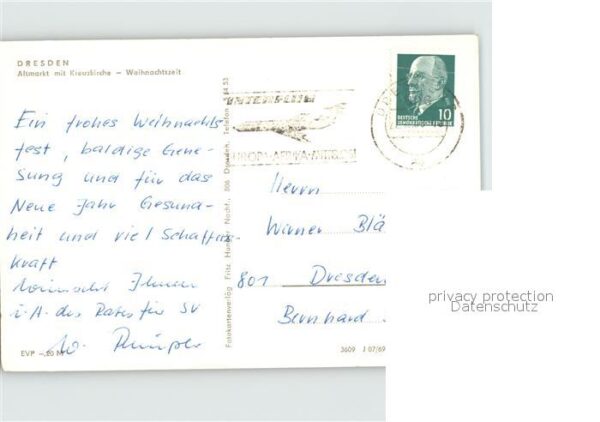 DRESDEN
Altmarkt mit Kreuzkirche – Weihnachtszeit
Ein frohes Weihnachts
fest, baldige Gene-
sung und für das
Neue Jahr Gesund-
heit und viel Schaffens-
kraft
wünscht Ihnen
i. A. des Rates für SV
W.
EVP –,20 M
Fotokartenverlag Fritz Hunger Nachf., 806 Dresden, Telefon 5 44 53
INTERFLUG
EUROPA-AFRIKA-
10
DEUTSCHE
DEMOKRATISCHE REPUBLIK
Herrn
Werner Blä
801 Dresden
Bernhard
3609 J 07/69
privacy protection
Datenschutz